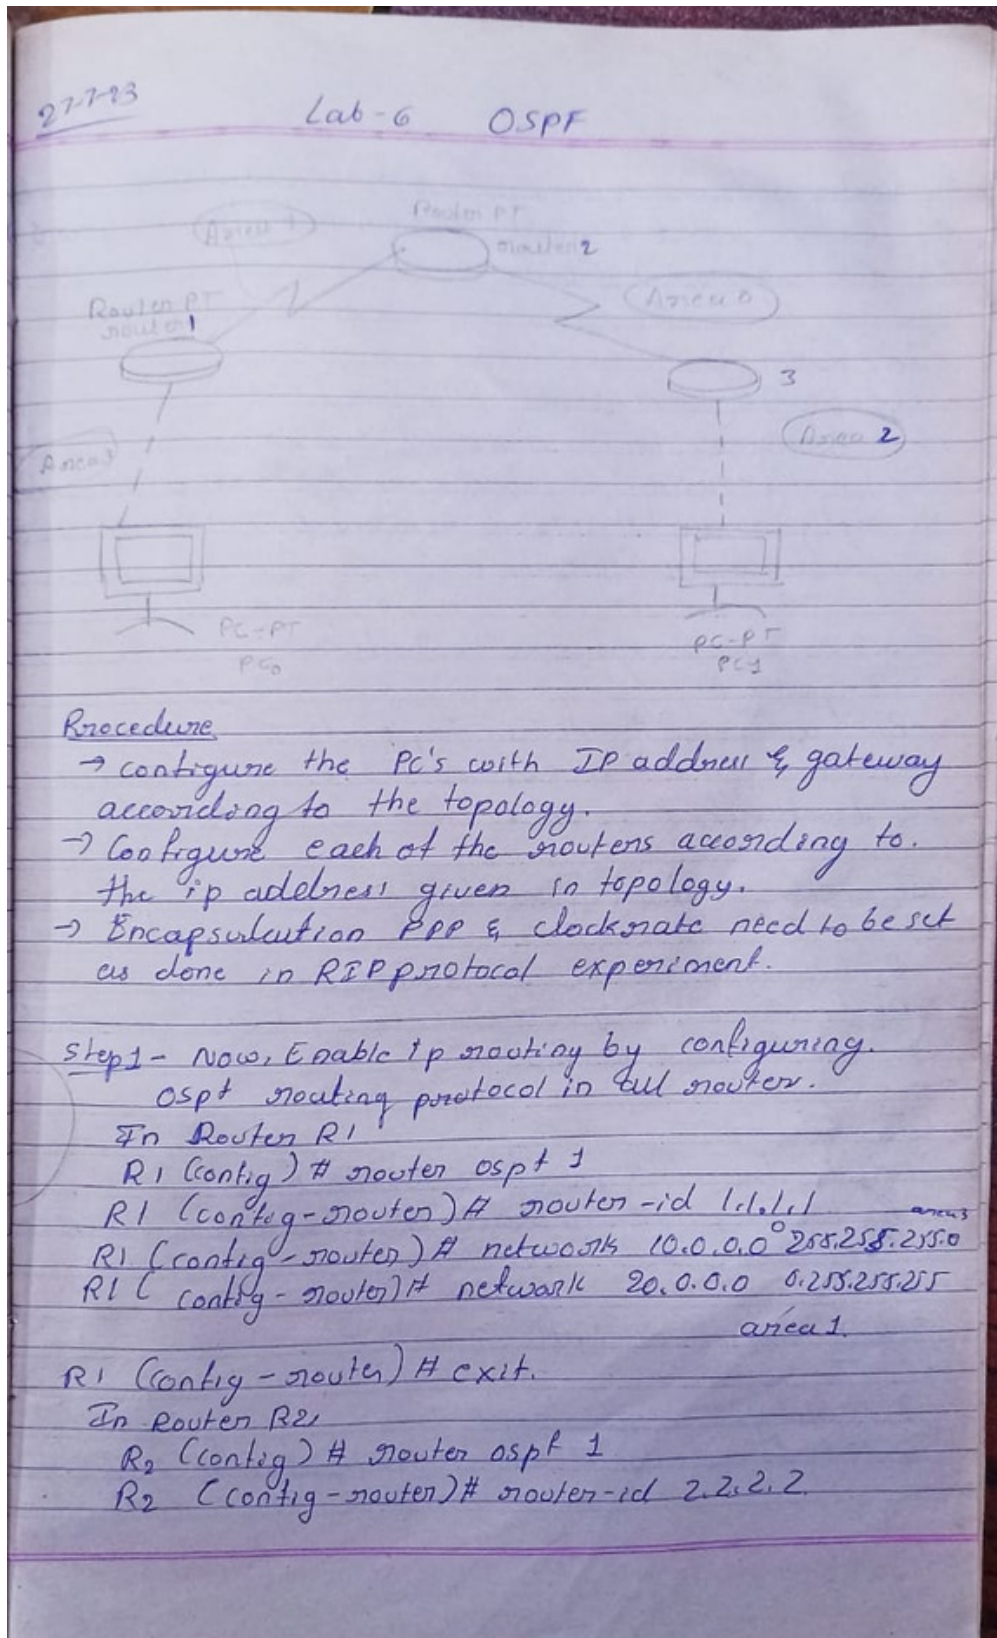 27-7-23
Lab-6 OSPF
Router PT
router 2
Area 1
Area 0
Router PT
router 1
3
Area 2
Area 3
PC-PT
PC0
PC-PT
PC1
Procedure
→ configure the PC's with IP address & gateway
according to the topology.
→ Configure each of the routers according to.
the ip address given in topology.
→ Encapsulation PPP & clockrate need to be set
as done in RIP protocol experiment.
Step1 - Now, Enable ip routing by configuring.
ospf routing protocol in all router.
In Router R1
R1 (config) # router ospf 1
R1 (config-router) # router-id 1.1.1.1
area 3
R1 (config-router) # network 10.0.0.0 255.255.255.0
R1 (config-router) # network 20.0.0.0 0.255.255.255
area 1.
R1 (config-router) # exit.
In Router R2,
R2 (config) # router ospf 1
R2 (config-router) # router-id 2.2.2.2